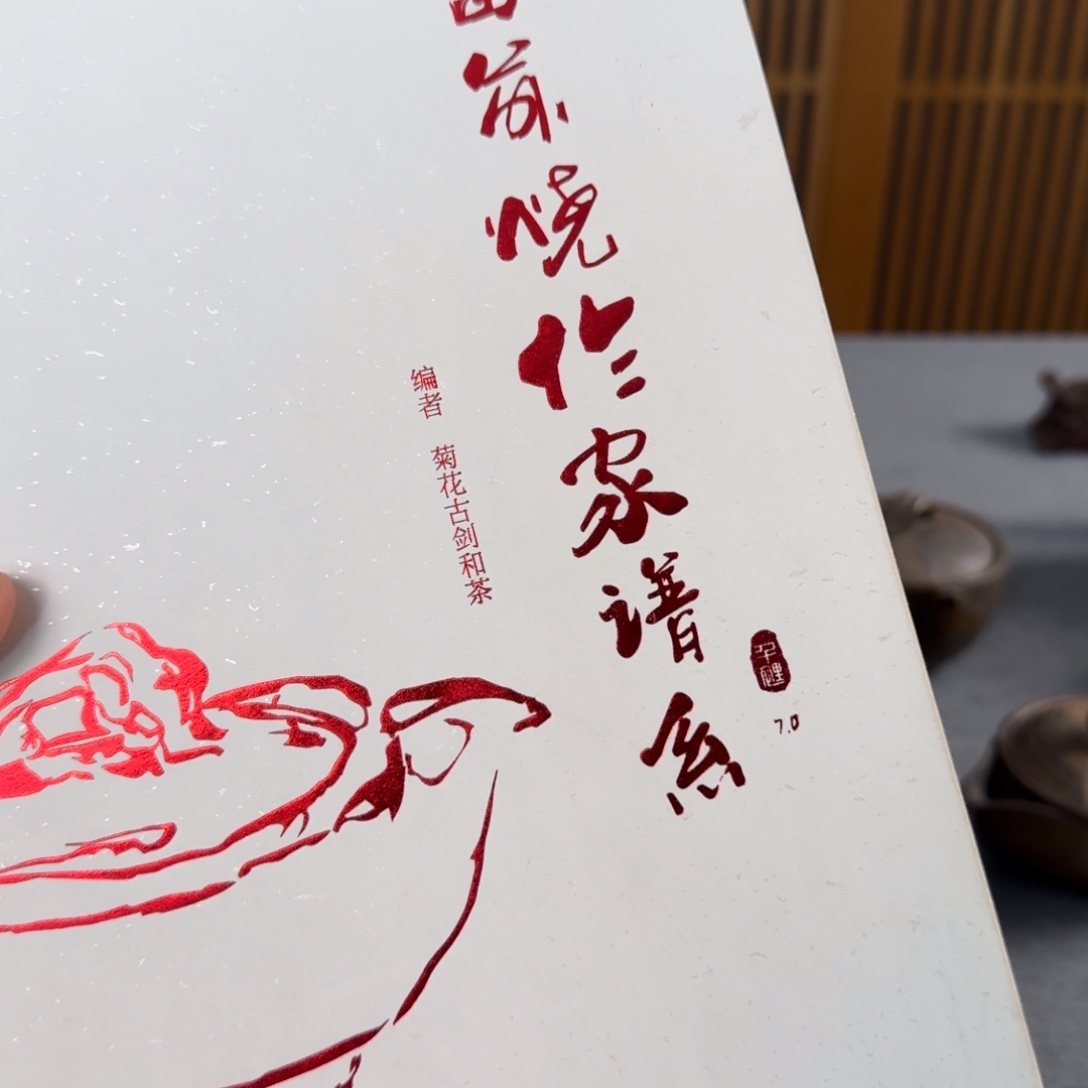 前烧作家谱系
7.0
编者 菊花古剑和茶